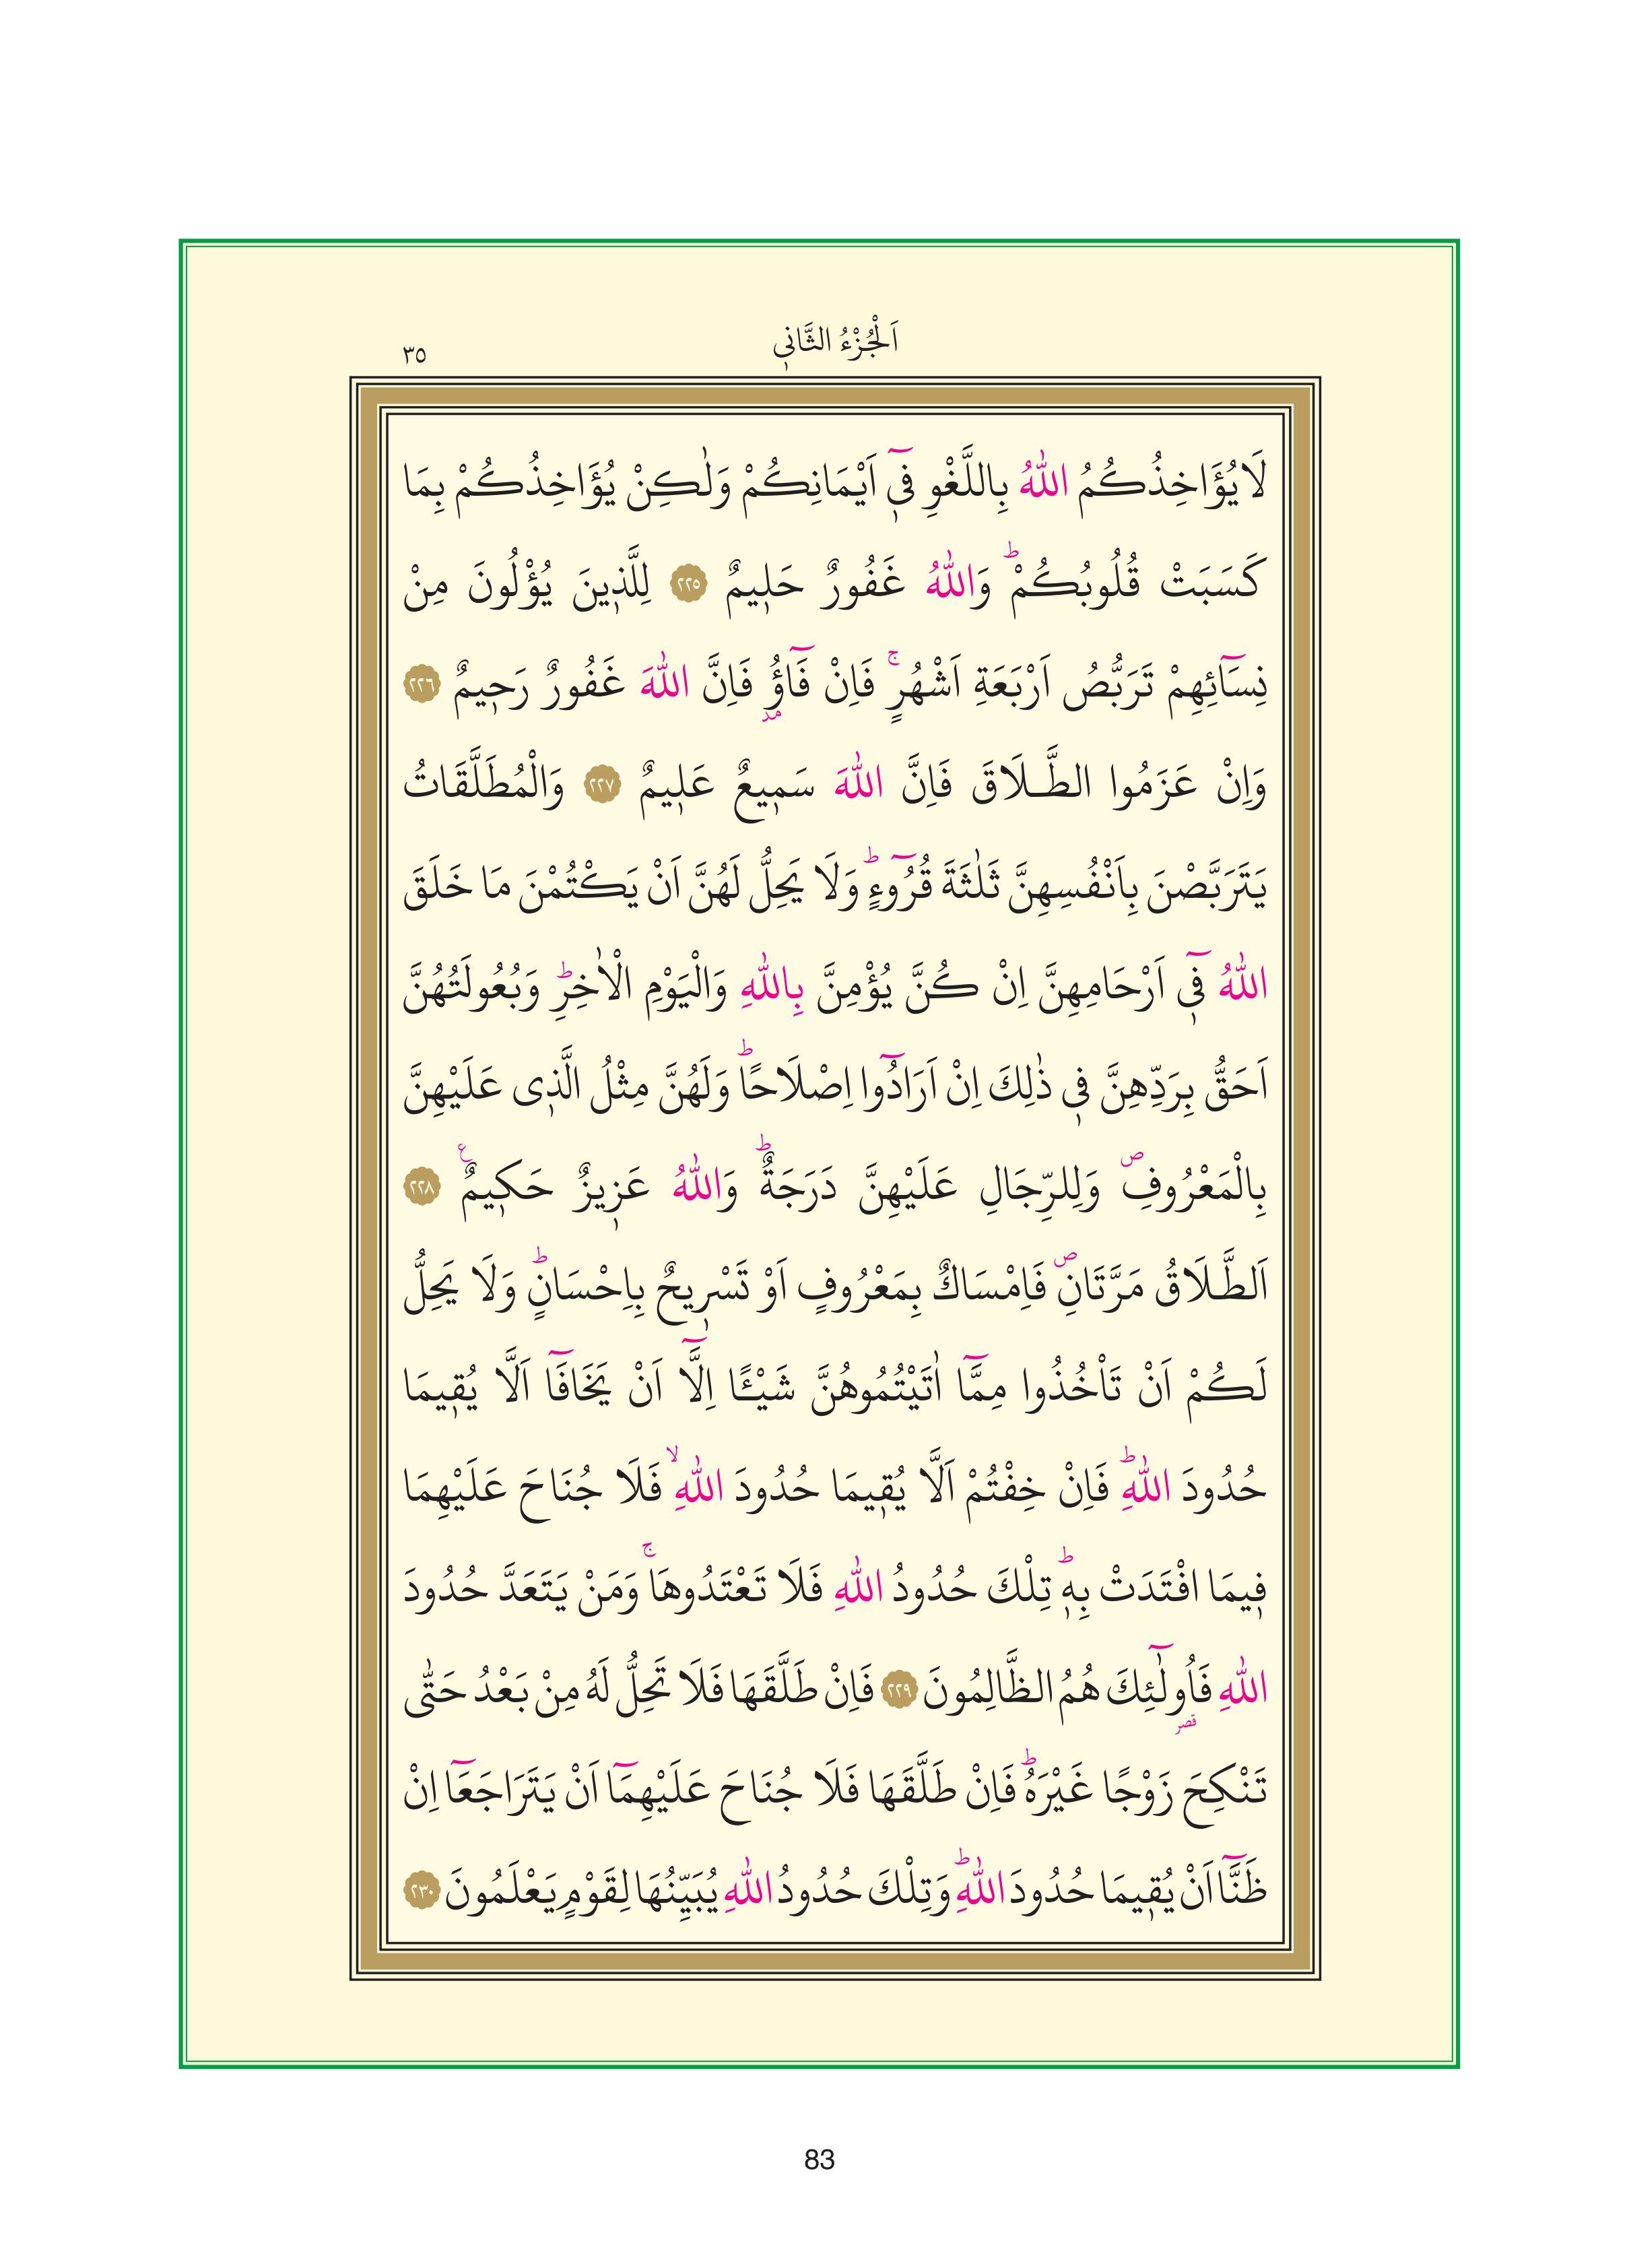 اَلْجُزْءُ الثَّانٖي
٣٥
لَا يُؤَاخِذُكُمُ اللّٰهُ بِاللَّغْوِ فٖٓي اَيْمَانِكُمْ وَلٰكِنْ يُؤَاخِذُكُمْ بِمَا
كَسَبَتْ قُلُوبُكُمْؕ وَاللّٰهُ غَفُورٌ حَلٖيمٌ ٢٢٥ لِلَّذٖينَ يُؤْلُونَ مِنْ
نِسَٓائِهِمْ تَرَبُّصُ اَرْبَعَةِ اَشْهُرٍۚ فَاِنْ فَٓاؤُ۫ فَاِنَّ اللّٰهَ غَفُورٌ رَحٖيمٌ ٢٢٦
وَاِنْ عَزَمُوا الطَّلَاقَ فَاِنَّ اللّٰهَ سَمٖيعٌ عَلٖيمٌ ٢٢٧ وَالْمُطَلَّقَاتُ
يَتَرَبَّصْنَ بِاَنْفُسِهِنَّ ثَلٰثَةَ قُرُٓوءٍؕ وَلَا يَحِلُّ لَهُنَّ اَنْ يَكْتُمْنَ مَا خَلَقَ
اللّٰهُ فٖٓي اَرْحَامِهِنَّ اِنْ كُنَّ يُؤْمِنَّ بِاللّٰهِ وَالْيَوْمِ الْاٰخِرِؕ وَبُعُولَتُهُنَّ
اَحَقُّ بِرَدِّهِنَّ فٖي ذٰلِكَ اِنْ اَرَادُٓوا اِصْلَاحًاؕ وَلَهُنَّ مِثْلُ الَّذٖى عَلَيْهِنَّ
بِالْمَعْرُوفِࣕ وَلِلرِّجَالِ عَلَيْهِنَّ دَرَجَةٌؕ وَاللّٰهُ عَزٖيزٌ حَكٖيمٌ ع ٢٢٨
اَلطَّلَاقُ مَرَّتَانِࣕ فَاِمْسَاكٌ بِمَعْرُوفٍ اَوْ تَسْرٖيحٌ بِاِحْسَانٍؕ وَلَا يَحِلُّ
لَكُمْ اَنْ تَأْخُذُوا مِمَّٓا اٰتَيْتُمُوهُنَّ شَيْـًٔا اِلَّٓا اَنْ يَخَافَٓا اَلَّا يُقٖيمَا
حُدُودَ اللّٰهِؕ فَاِنْ خِفْتُمْ اَلَّا يُقٖيمَا حُدُودَ اللّٰهِۙ فَلَا جُنَاحَ عَلَيْهِمَا
فٖيمَا افْتَدَتْ بِهٖؕ تِلْكَ حُدُودُ اللّٰهِ فَلَا تَعْتَدُوهَاۚ وَمَنْ يَتَعَدَّ حُدُودَ
اللّٰهِ فَاُولٰٓئِكَ هُمُ الظَّالِمُونَ ٢٢٩ فَاِنْ طَلَّقَهَا فَلَا تَحِلُّ لَهُ مِنْ بَعْدُ حَتّٰى
تَنْكِحَ زَوْجًا غَيْرَهُؕ فَاِنْ طَلَّقَهَا فَلَا جُنَاحَ عَلَيْهِمَٓا اَنْ يَتَرَاجَعَٓا اِنْ
ظَنَّٓا اَنْ يُقٖيمَا حُدُودَ اللّٰهِؕ وَتِلْكَ حُدُودُ اللّٰهِ يُبَيِّنُهَا لِقَوْمٍ يَعْلَمُونَ ٢٣٠
83